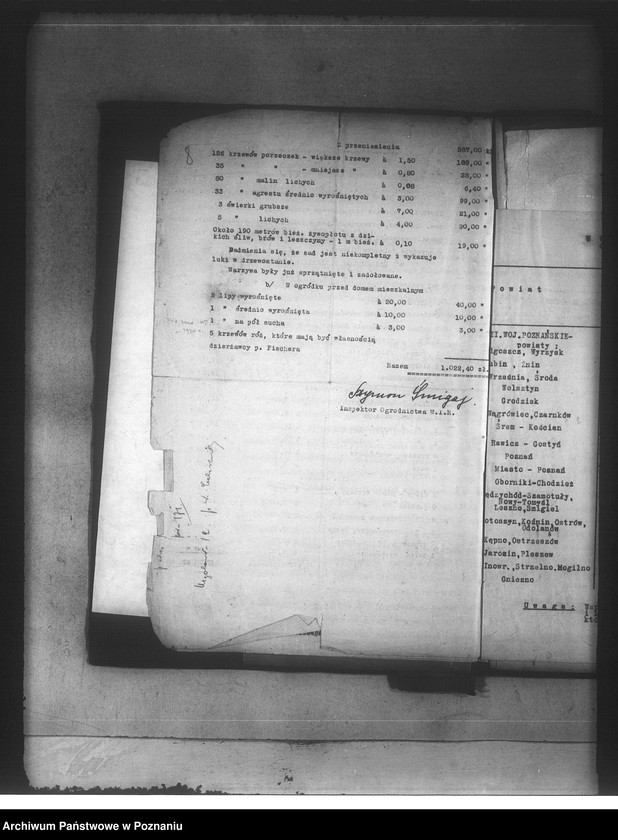 8
Z przeniesienia 587,00 zł
126 krzewów porzeczek - większe krzewy à 1,50 189,00 "
35 " " - mniejsze " à 0,80 28,00 "
80 " malin lichych à 0,08 6,40 "
33 " agrestu średnio wyrośniętych à 3,00 99,00 "
3 świerki grubsze à 7,00 21,00 "
5 " lichych à 4,00 20,00 "
Około 190 metrów bież. żywopłotu z dzi-
kich śliw, bzów i leszczyny - 1 m bież. à 0,10 19,00 "
Nadmienia się, że sad jest niekompletny z wykazuje
luki w drzewostanie.
Warzywa były już sprzątnięte i zadołowane.
b/ W ogródku przed domem mieszkalnym
2 lipy wyrośnięte à 20,00 40,00 "
1 " średnio wyrośnięta à 10,00 10,00 "
1 " na pół sucha à 3,00 3,00 "
5 krzewów róż, które mają być własnością
dzierżawcy p. Fischera
Razem 1.022,40 zł.
Szymon Śmigaj.
Inspektor Ogrodnictwa W.I.R.
Powiat
II.WOJ.POZNAŃSKIE-
powiaty :
dgoszcz, Wyrzysk
ubin , Żnin
Września, Środa
Wolsztyn
Grodzisk
Wągrówiec,Czarnków
Śrem - Kościan
Rawicz - Gostyń
Poznań
Miasto - Poznań
Oborniki-Chodzież
ędzychód-Szamotuły,
Nowy-Tomyśl
Leszno,Śmigiel
otoszyn,Koźmin,Ostrów,
Odolanów
Kępno,Ostrzeszów
Jarocin,Pleszew
Inowr.,Strzelno.Mogilno
Gniezno
Uwaga:
Archiwum Państwowe w Poznaniu